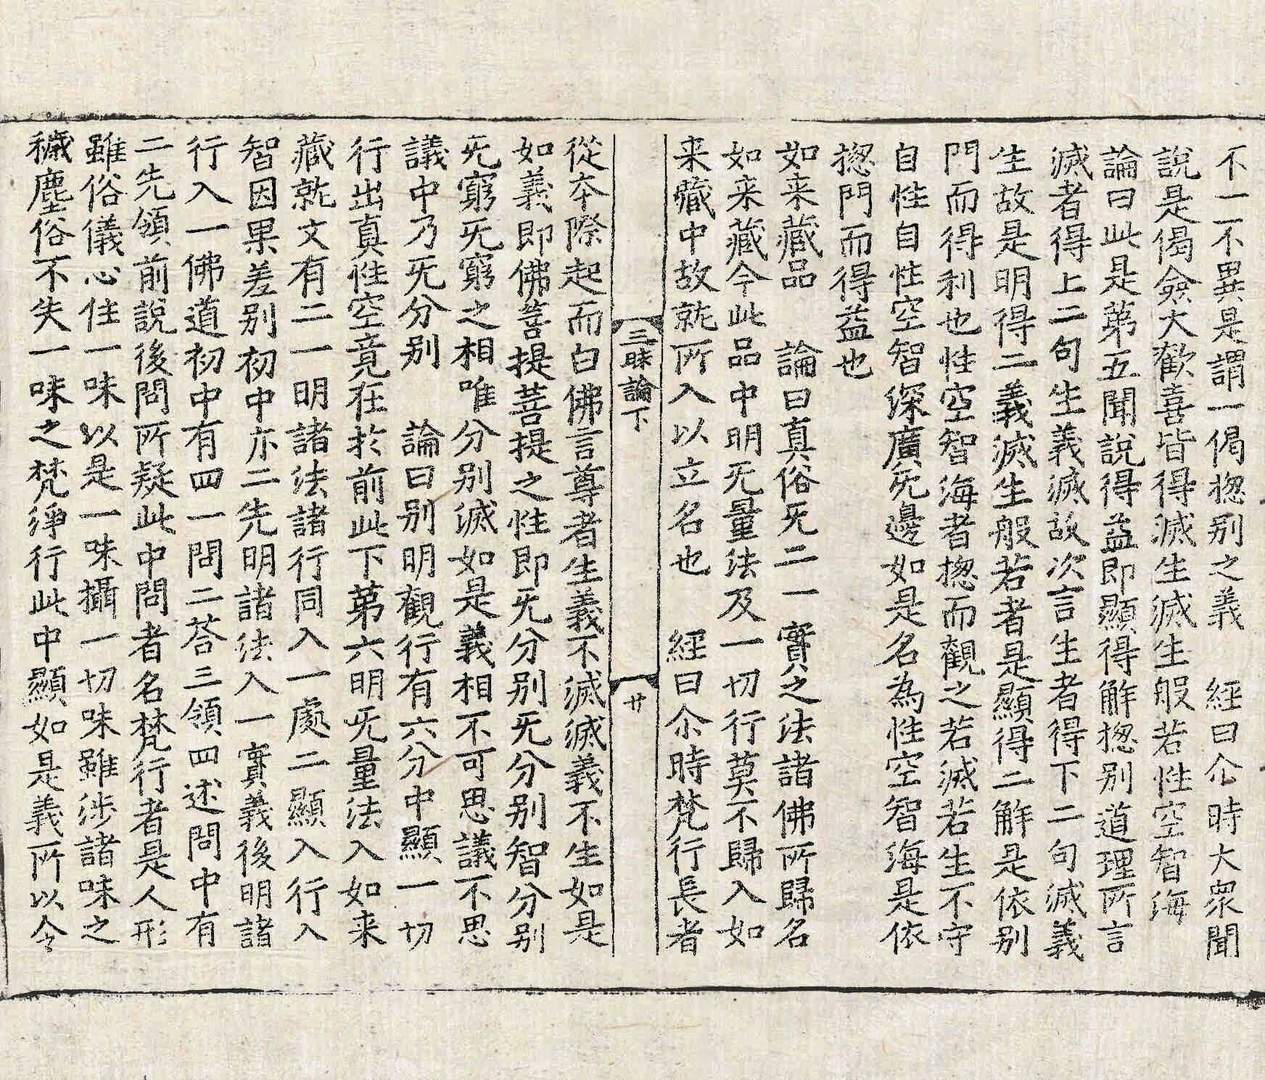 不一不異是謂一偈揔別之義　經曰尒時大衆聞
說是偈僉大歡喜皆得滅生滅生般若性空智海
論曰此是第五聞說得益即顯得解揔別道理所言
滅者得上二句生義滅故次言生者得下二句滅義
生故是明得二義滅生般若者是顯得二解是依別
門而得利也性空智海者揔而觀之若滅若生不守
自性自性空智深廣旡邊如是名為性空智海是依
揔門而得益也
如来藏品　論曰真俗旡二一實之法諸佛所歸名
如来藏今此品中明旡量法及一切行莫不歸入如
来藏中故就所入以立名也　經曰尒時梵行長者
三昧論下　廿
從夲際起而白佛言尊者生義不滅滅義不生如是
如義即佛菩提菩提之性即旡分别旡分别智分别
旡窮旡窮之相唯分别滅如是義相不可思議不思
議中乃旡分别　論曰别明觀行有六分中顯一切
行出真性空竟在於前此下第六明旡量法入如来
藏就文有二一明諸法諸行同入一處二顯入行入
智因果差别初中亦二先明諸法入一實義後明諸
行入一佛道初中有四一問二荅三領四述問中有
二先領前說後問所疑此中問者名梵行者是人形
雖俗儀心住一味以是一味攝一切味雖涉諸味之
穢塵俗不失一味之梵淨行此中顯如是義所以令